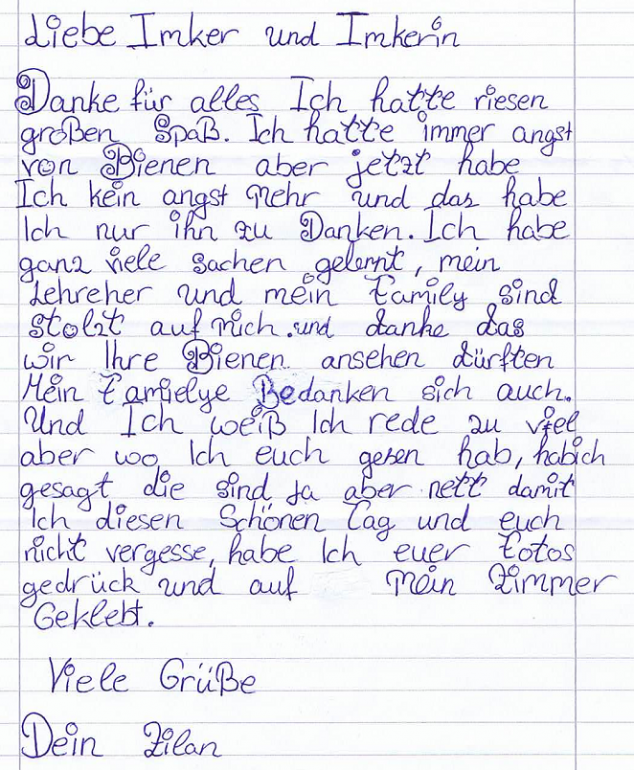 Liebe Imker und Imkerin
Danke für alles Ich hatte riesen
großen Spaß. Ich hatte immer angst
von Bienen aber jetzt habe
Ich kein angst mehr und das habe
Ich nur ihn zu Danken. Ich habe
ganz viele sachen gelernt, mein
Lehreher und mein Family sind
stolzt auf mich. und danke das
wir Ihre Bienen ansehen dürften
Mein Famielye Bedanken sich auch.
Und Ich weiß Ich rede zu viel
aber wo Ich euch gesen hab, habich
gesagt die sind ja aber nett damit
Ich diesen Schönen Tag und euch
nicht vergesse, habe Ich euer Fotos
gedrück und auf mein Zimmer
Geklebt.
Viele Grüße
Dein Zilan